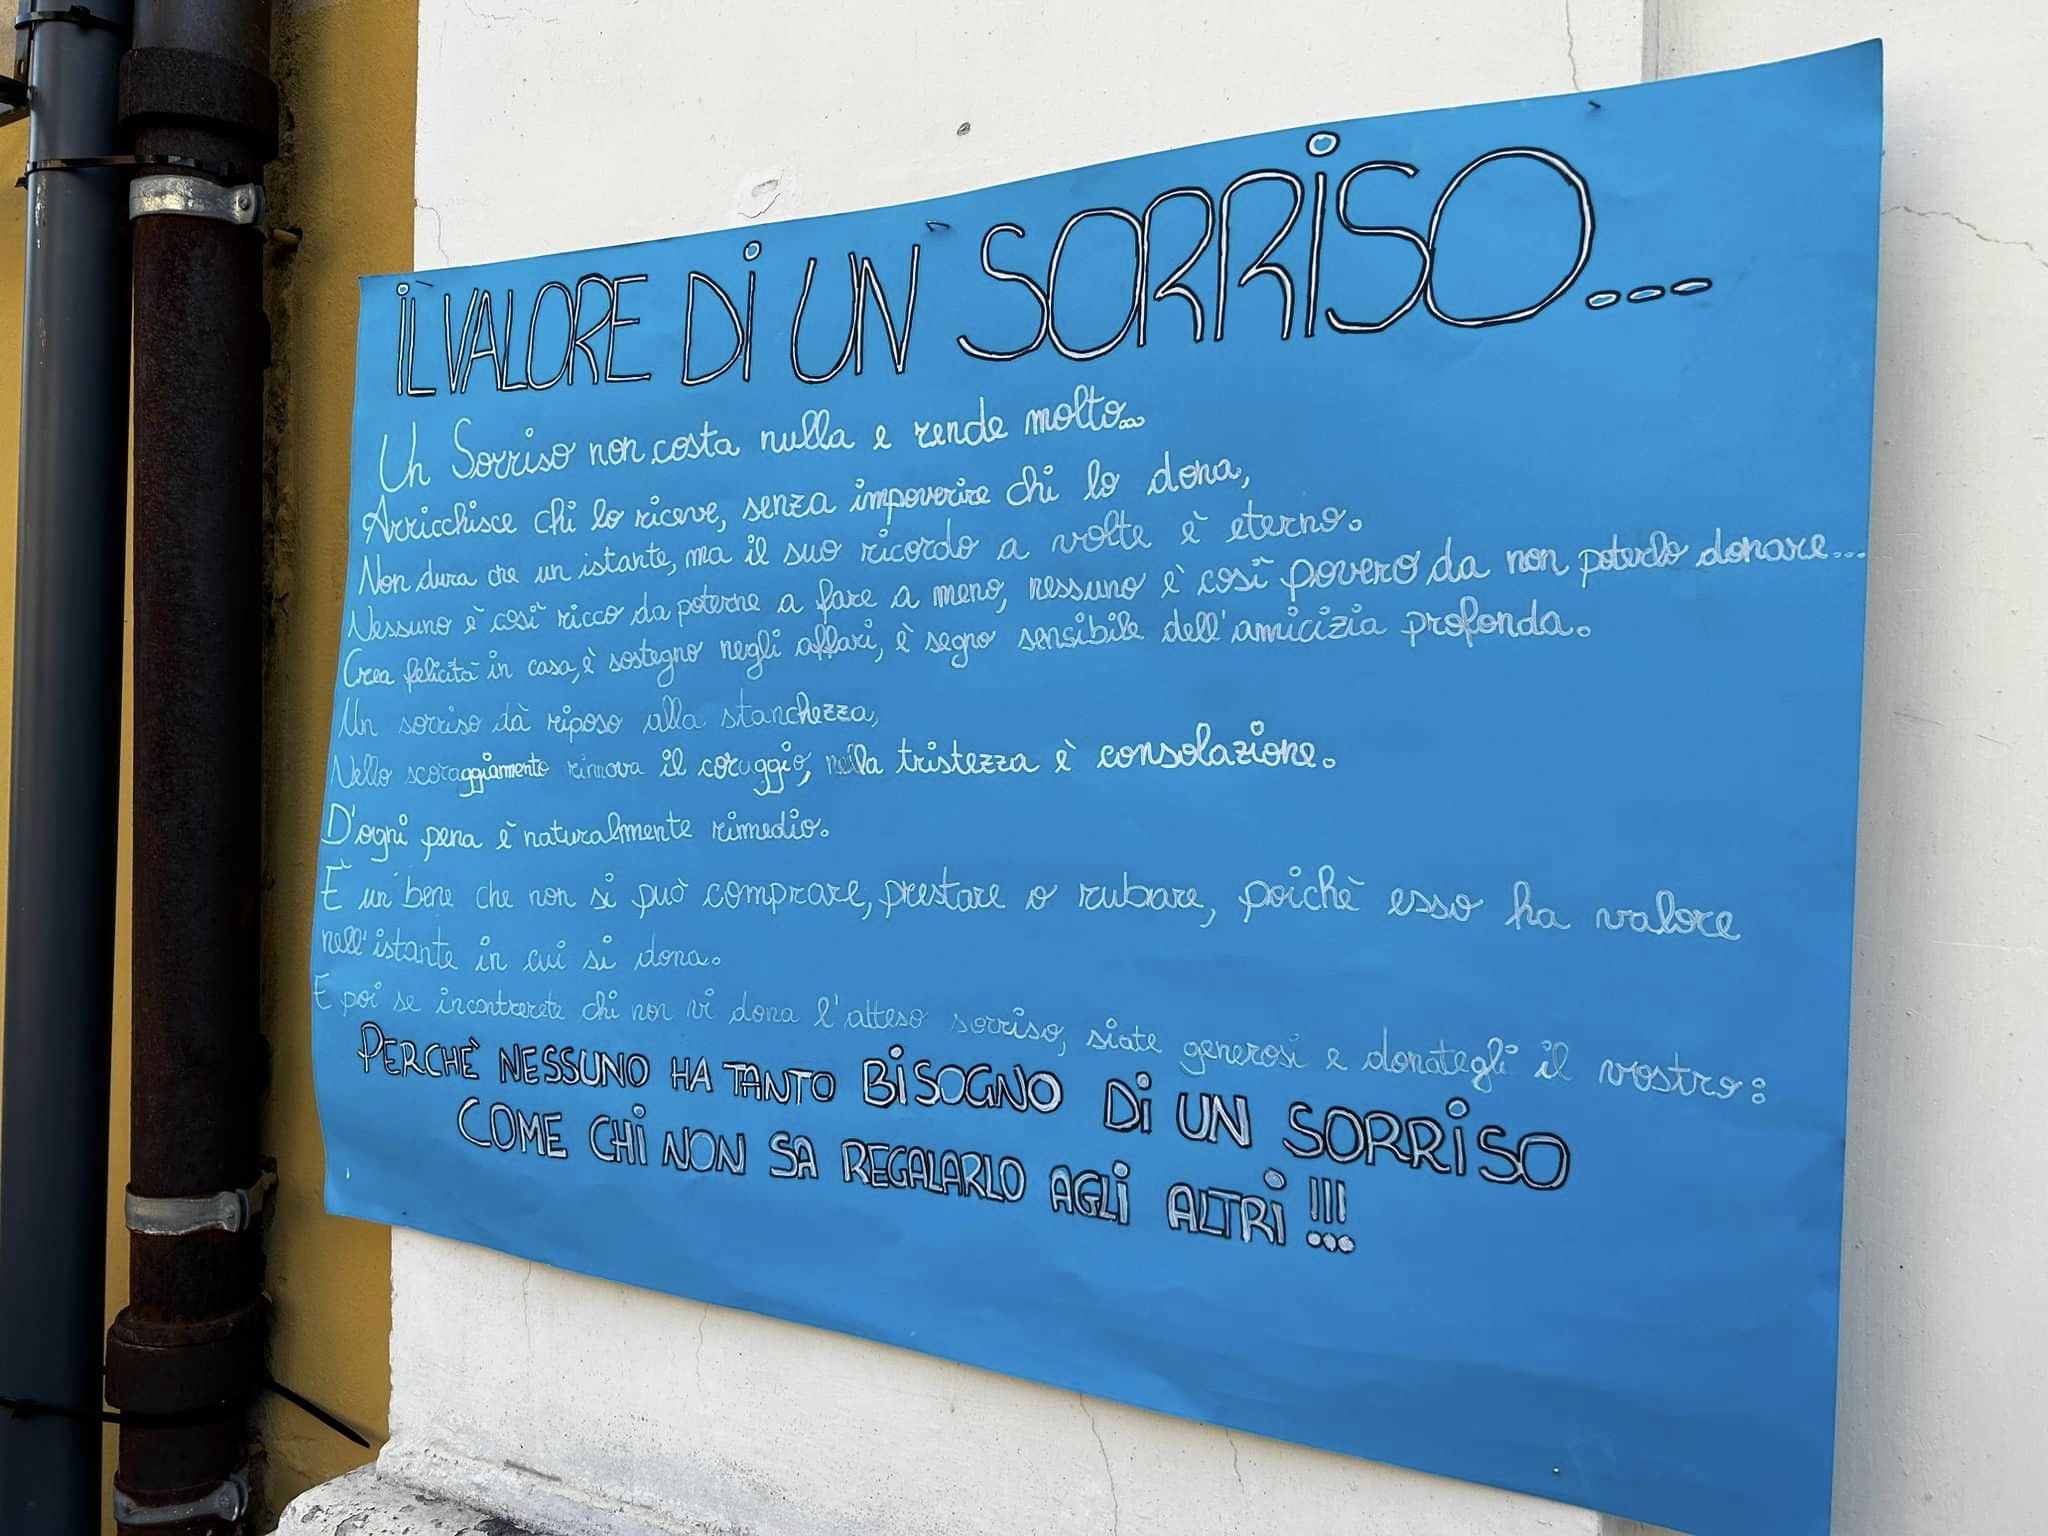 iL VALORE Di UN SORRiSO...
Un Sorriso non costa nulla e rende molto...
Arricchisce chi lo riceve, senza impoverire chi lo dona,
Non dura che un istante, ma il suo ricordo a volte è eterno.
Nessuno è così ricco da poterne a fare a meno, nessuno è così povero da non poterlo donare...
Crea felicità in casa, è sostegno negli affari, è segno sensibile dell'amicizia profonda.
Un sorriso dà riposo alla stanchezza,
Nello scoraggiamento rinnova il coraggio, nella tristezza è consolazione.
D'ogni pena è naturalmente rimedio.
È un bene che non si può comprare, prestare o rubare, poichè esso ha valore
nell'istante in cui si dona.
E poi se incontrerete chi non vi dona l'atteso sorriso, siate generosi e donategli il vostro:
PERCHÈ NESSUNO HA TANTO BiSOGNO Di UN SORRiSO
COME CHi NON SA REGALARLO AGLi ALTRi!!!